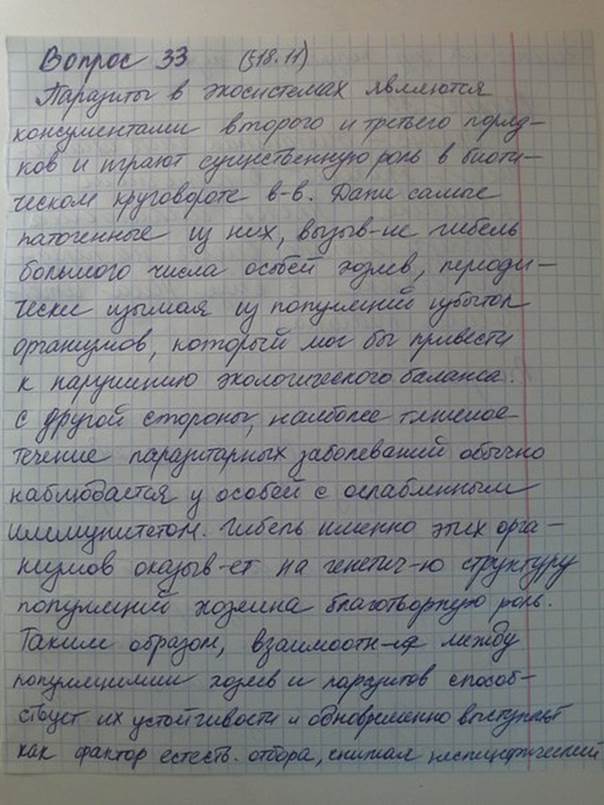 Вопрос 33 (§18.11)
Паразиты в экосистемах являются
консументами второго и третьего поряд-
ков и играют существенную роль в биоти-
ческом круговороте в-в. Даже самые
патогенные из них, вызыв-ие гибель
большого числа особей хозяев, периоди-
чески изымая из популяций избыток
организмов, который мог бы привести
к нарушению экологического баланса.
С другой стороны, наиболее тяжелое
течение паразитарных заболеваний обычно
наблюдается у особей с ослабленным
иммунитетом. Гибель именно этих орга-
низмов оказыв-ет на генетич-ю структуру
популяций хозяина благотворную роль.
Таким образом, взаимоотн-я между
популяциями хозяев и паразитов способ-
ствует их устойчивости и одновременно выступает
как фактор естеств. отбора, снижая неспецифический